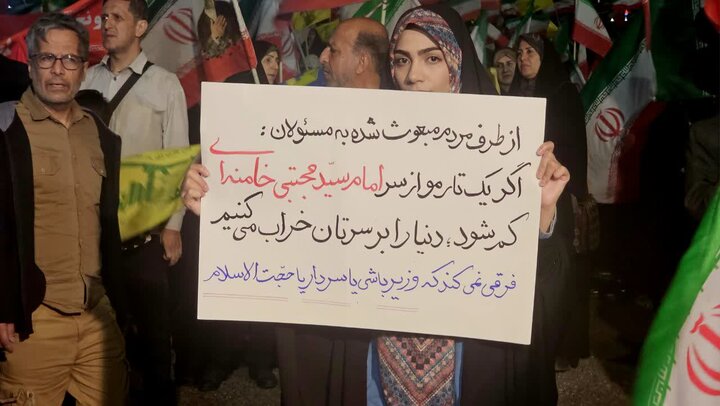 از طرف مردم مبعوث شده به مسئولان :
اگر یک تار مو از سر امام سیّد مجتبی خامنه ای
کم شود؛ دنیا را بر سرتان خراب می کنیم
فرقی نمی کند که وزیر باشی یا سردار یا حجّت الاسلام